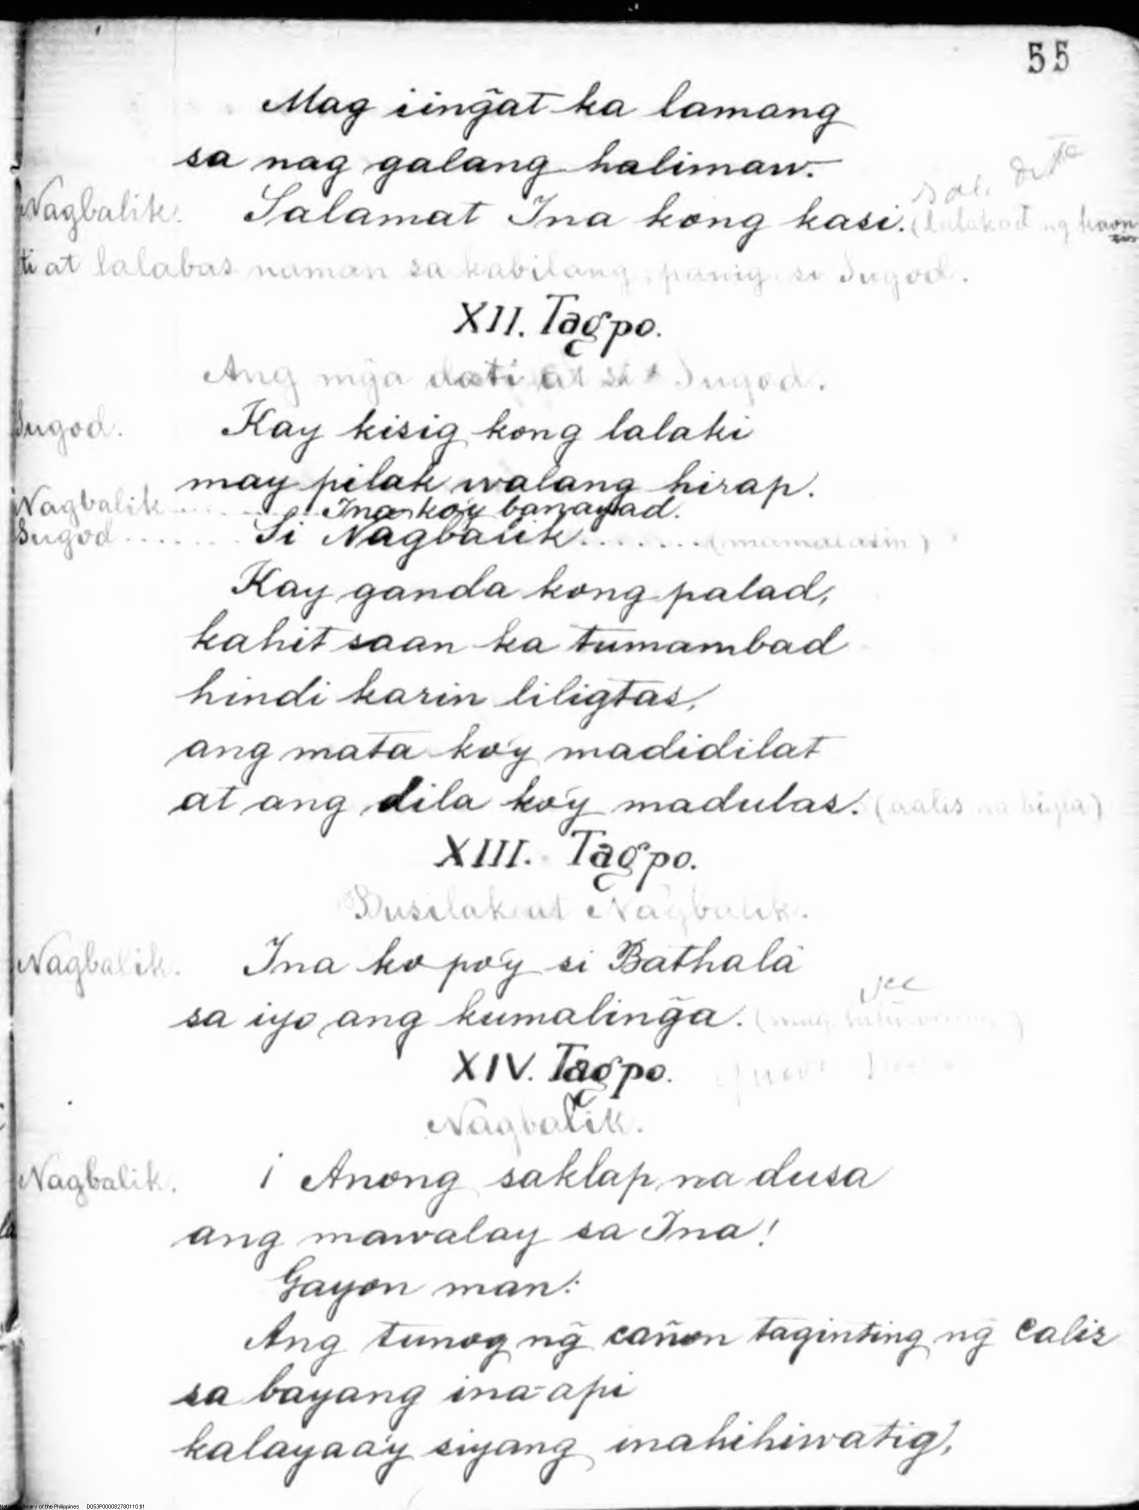 55
Mag iing̃at ka lamang
sa nag galang halimaw.
Nagbalik. Salamat Ina kong kasi. (lalakad ng kaon
ti at lalabas naman sa kabilang panig si Sugod.
XII. Tagpo.
Ang mg̃a dati at si Sugod.
Sugod. Kay kisig kong lalaki
may pilak walang hirap.
Nagbalik ........ Ina ko'y banayad.
Sugod ....... Si Nagbalik .......
Kay ganda kong palad,
kahit saan ka tumambad
hindi karin liligtas,
ang mata ko'y madidilat
at ang dila ko'y madulas. (aalis na bigla)
XIII. Tagpo.
Busilak at Nagbalik.
Nagbalik. Ina ko po'y si Bathalà
sa iyo ang kumaling̃a.
XIV. Tagpo.
Nagbalik.
Nagbalik. ¡ Anong saklap na dusa
ang mawalay sa Ina!
Gayon man:
Ang tunog ng̃ cañon taginting ng̃ caliz
sa bayang ina-api
kalayaa'y siyang inahihiwatig,
National Library of the Philippines